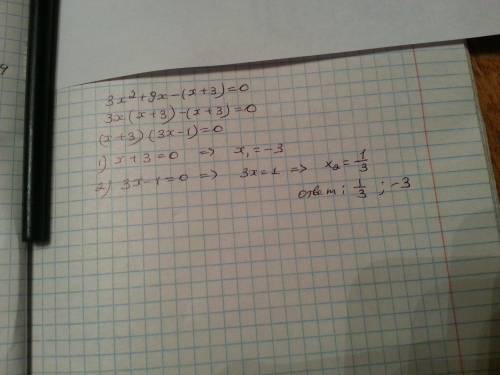 3x² + 9x - (x + 3) = 0
3x(x + 3) - (x + 3) = 0
(x + 3)(3x - 1) = 0
1) x + 3 = 0 => x₁ = -3
2) 3x - 1 = 0 => 3x = 1 => x₂ = 1/3
ответ: 1/3 ; -3